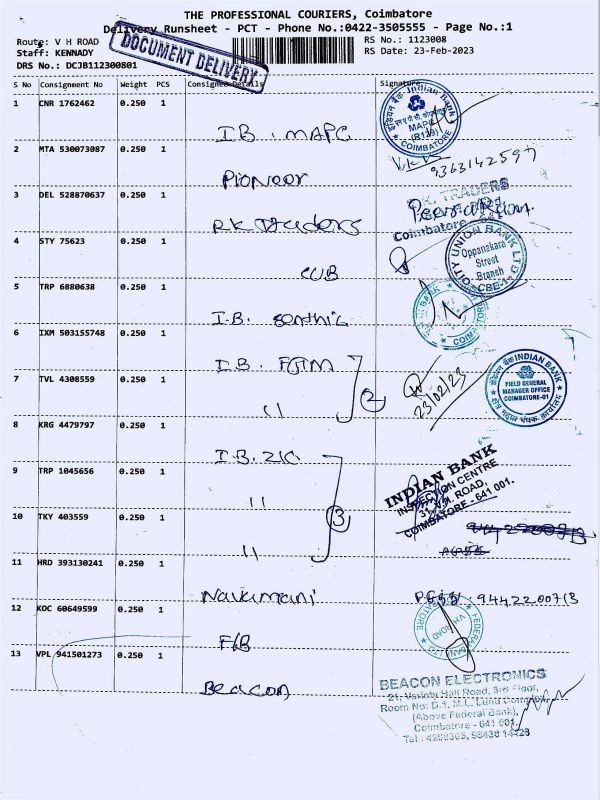 THE PROFESSIONAL COURIERS, Coimbatore
Delivery Runsheet - PCT - Phone No.:0422-3505555 - Page No.:1
Route: V H ROAD RS No.: 1123008
Staff: KENNADY RS Date: 23-Feb-2023
DRS No.: DCJB112300801
DOCUMENT DELIVERY
S No Consignment No Weight PCS Consignee Details Signature
1 CNR 1762462 0.250 1
I.B. MAPC
Indian Bank
MAPC
(R139)
COIMBATORE
2 MTA 530073087 0.250 1
Pioneer
3 DEL 528870637 0.250 1
R.K Traders
R.K. TRADERS
Coimbatore
4 STY 75623 0.250 1
CUB
CITY UNION BANK LTD
Oppanakara
Street
Branch
CBE-1
5 TRP 6880638 0.250 1
I.B. Senthil
6 IXM 503155748 0.250 1
I.B. FGM
7 TVL 4308559 0.250 1
" 2
23/02/23
इंडियन बैंक INDIAN BANK
FIELD GENERAL
MANAGER OFFICE
COIMBATORE-01
8 KRG 4479797 0.250 1
I.B. ZIC
9 TRP 1045656 0.250 1
"
INDIAN BANK
INSPECTION CENTRE
31, V.H. ROAD,
COIMBATORE - 641 001.
10 TKY 403559 0.250 1
" 3
11 HRD 393130241 0.250 1
Navamani
12 KOC 60649599 0.250 1
F/B
FEDERAL BANK LTD
VH ROAD
13 VPL 941501273 0.250 1
Beacon
BEACON ELECTRONICS
21, Variety Hall Road, 3rd Floor,
Room No: D.1, M.L. Complex,
(Above Federal Bank),
Coimbatore - 641 001.